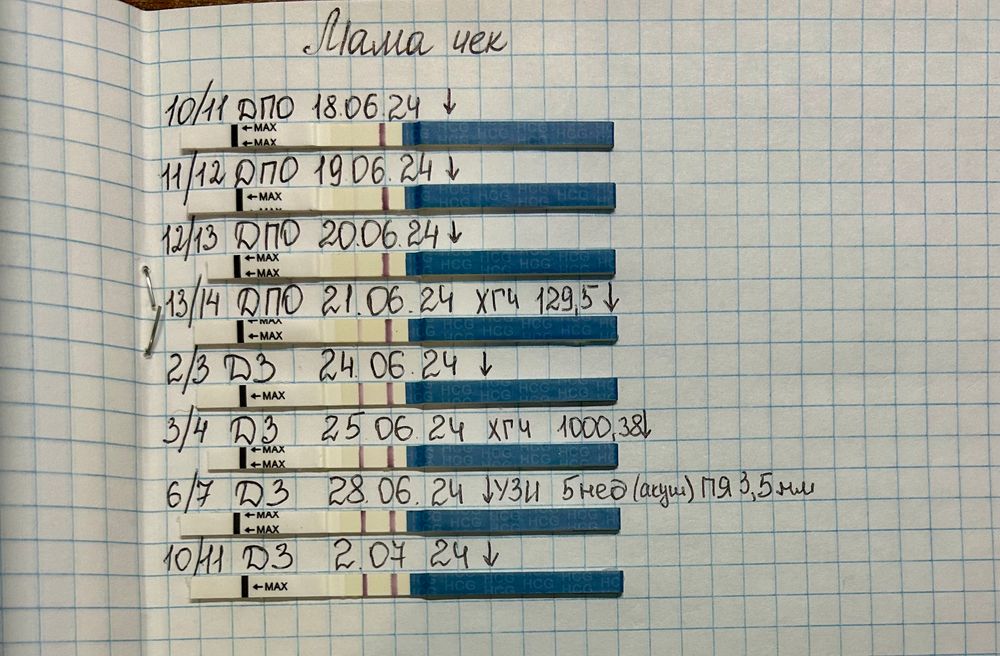 Мама чек
10/11 ДПО 18.06.24 ↓
←MAX
←MAX
HCG HCG HCG
11/12 ДПО 19.06.24 ↓
←MAX
HCG HCG HCG
12/13 ДПО 20.06.24 ↓
←MAX
←MAX
13/14 ДПО 21.06.24 ХГЧ 129,5 ↓
←MAX
←MAX
HCG HCG HCG
2/3 ДЗ 24.06.24 ↓
←MAX
3/4 ДЗ 25.06.24 ХГЧ 1000,38↓
←MAX
←MAX
HCG HCG HCG
6/7 ДЗ 28.06.24 ↓УЗИ 5нед (акуш) ПЯ 3,5мм
←MAX
←MAX
HCG HCG HCG
10/11 ДЗ 2.07 24 ↓
←MAX
HCG HCG